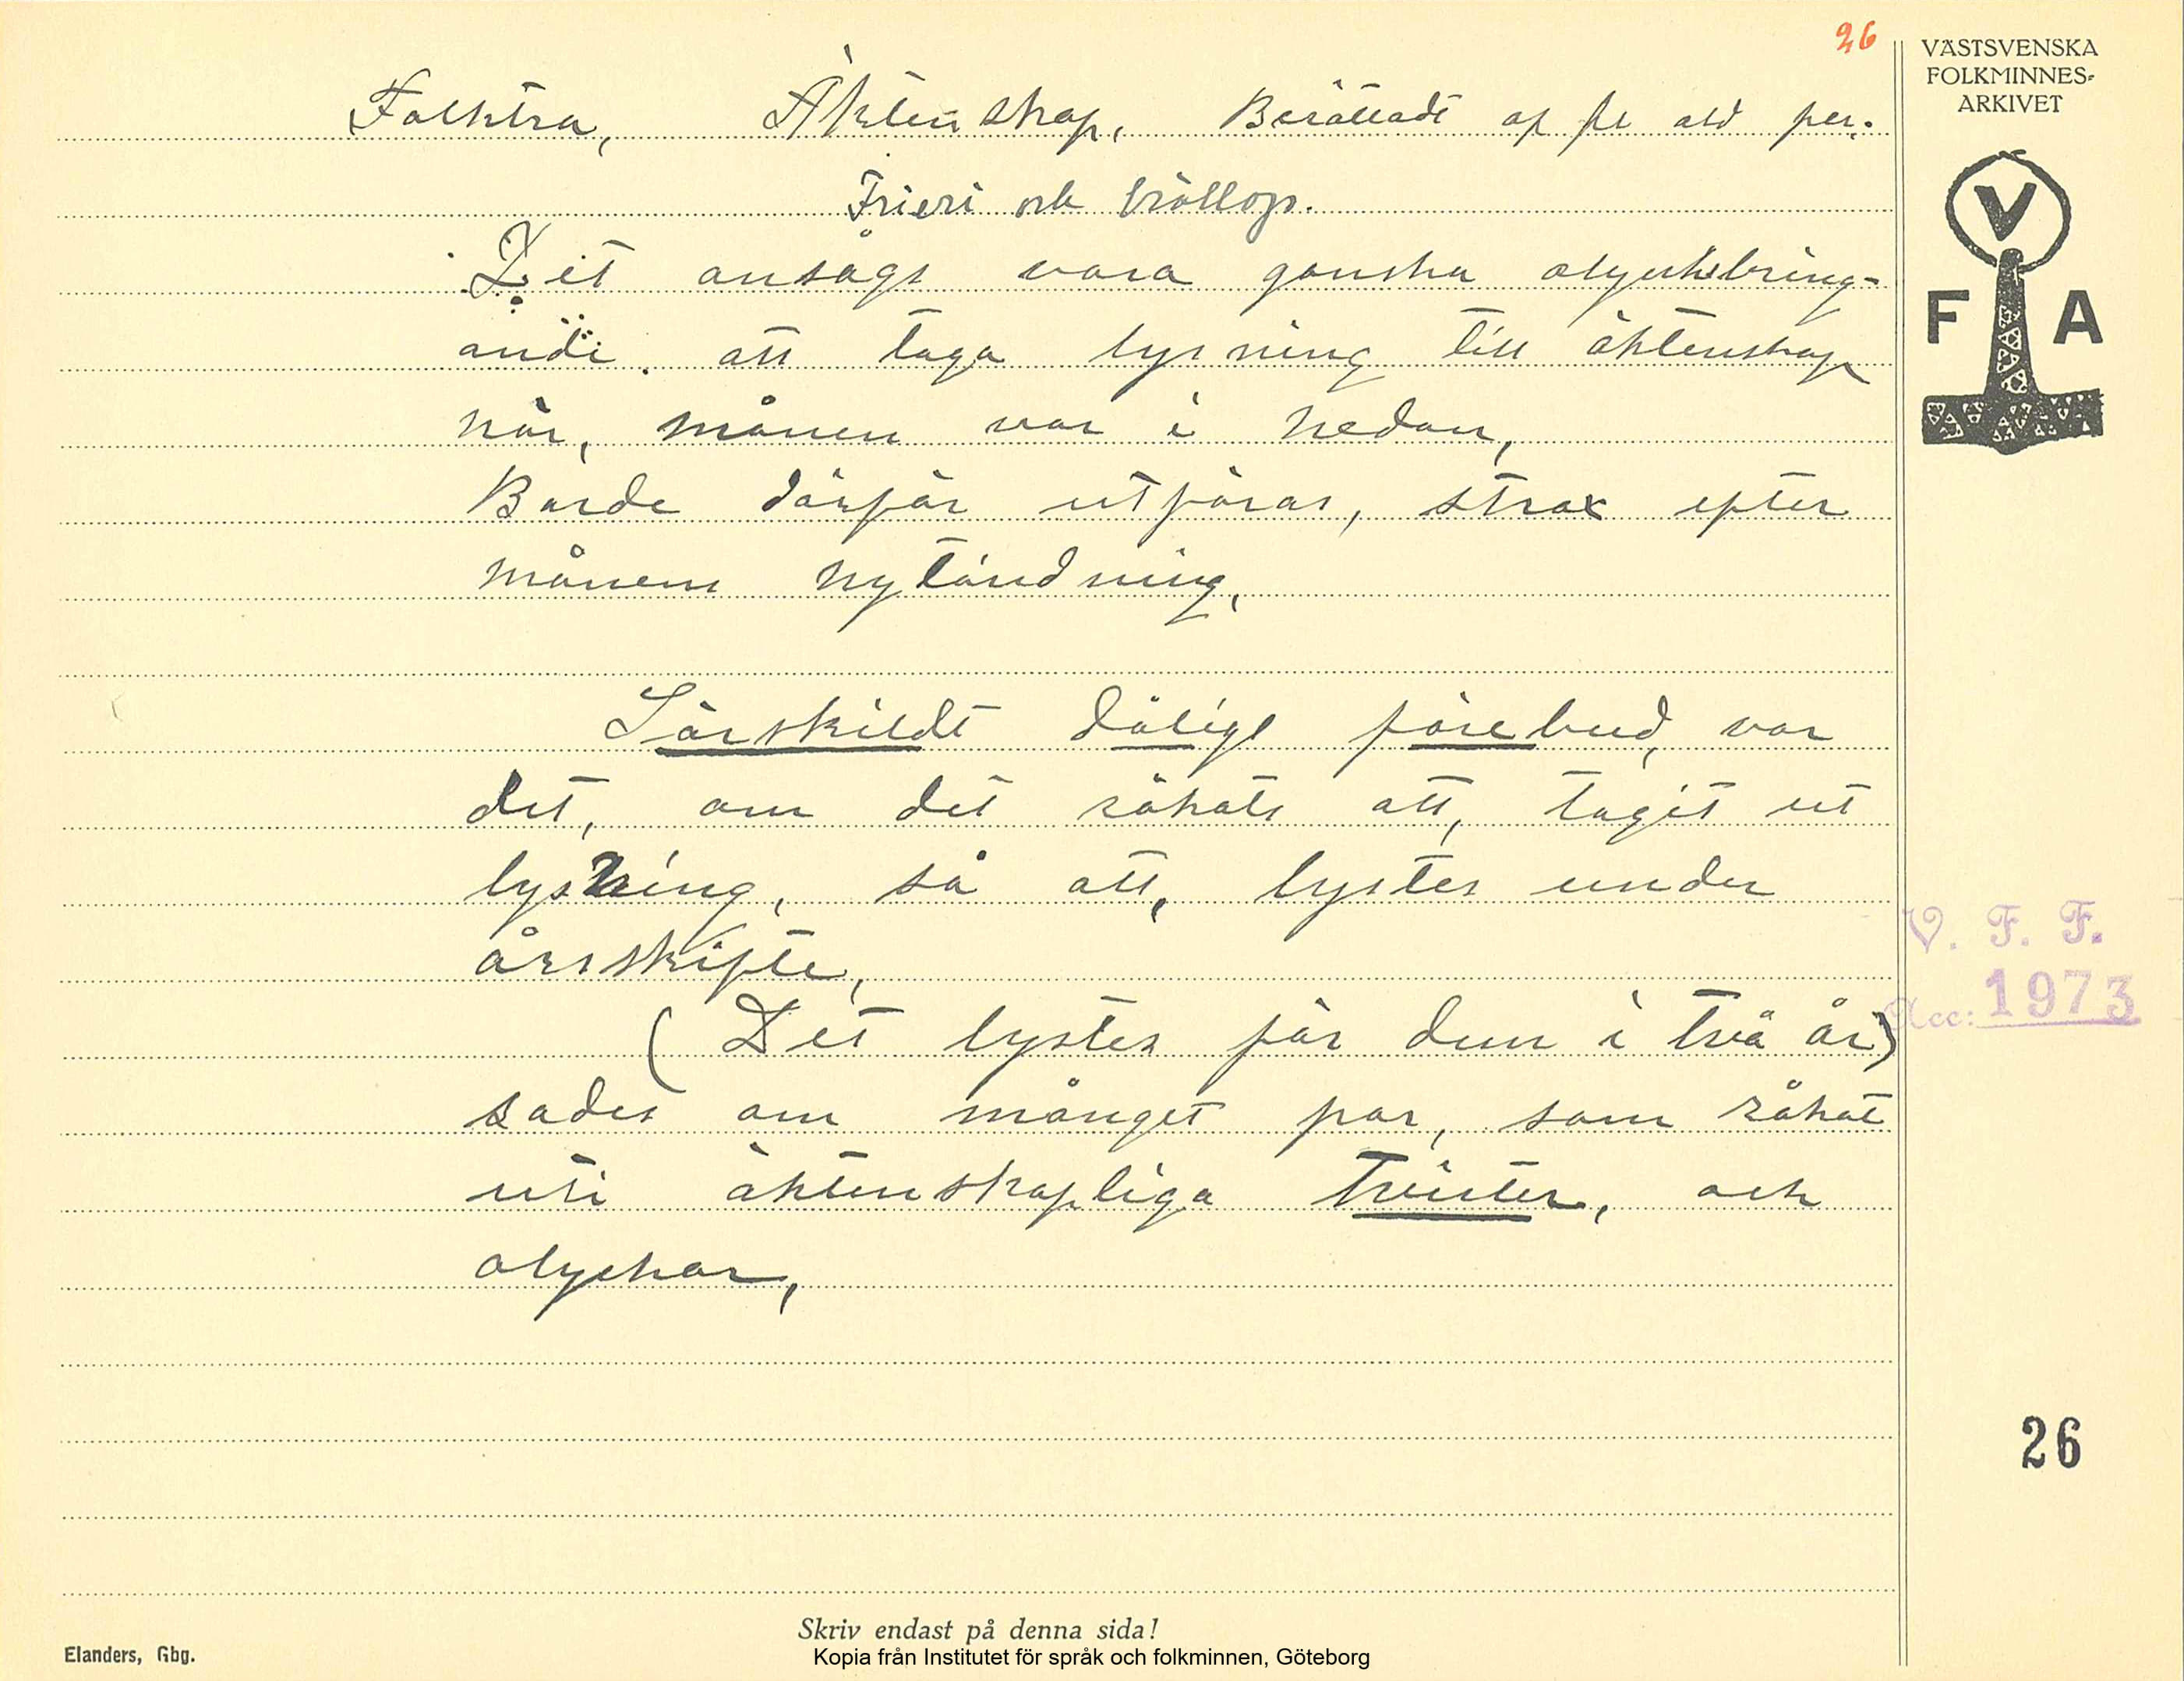 26
VÄSTSVENSKA
FOLKMINNES-
ARKIVET
Folktro, Äktenskap, Berättadt af fl old per.
Frieri och bröllop.
V
F A
Det ansågs vara ganska olyckbring-
ande att taga lysning till äktenskap
när, månen var i nedan,
Borde därför utföras, strax efter
månens nytändning,
Särskildt dåligt förebud, var
det, om det råkats att, tagit ut
lysning, så att, lystes under
årsskifte,
(Det lystes för dem i två år)
sades om månget par, som råkat
uti äktenskapliga tvister, och
olyckor,
V. F. F.
Acc: 1973
26
Skriv endast på denna sida!
Elanders, Gbg.
Kopia från Institutet för språk och folkminnen, Göteborg